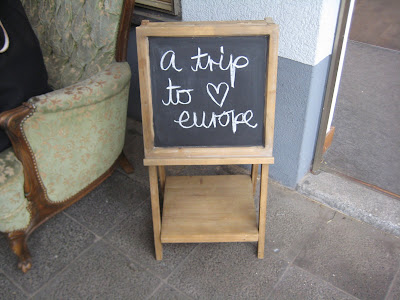 a trip
to ♡
europe